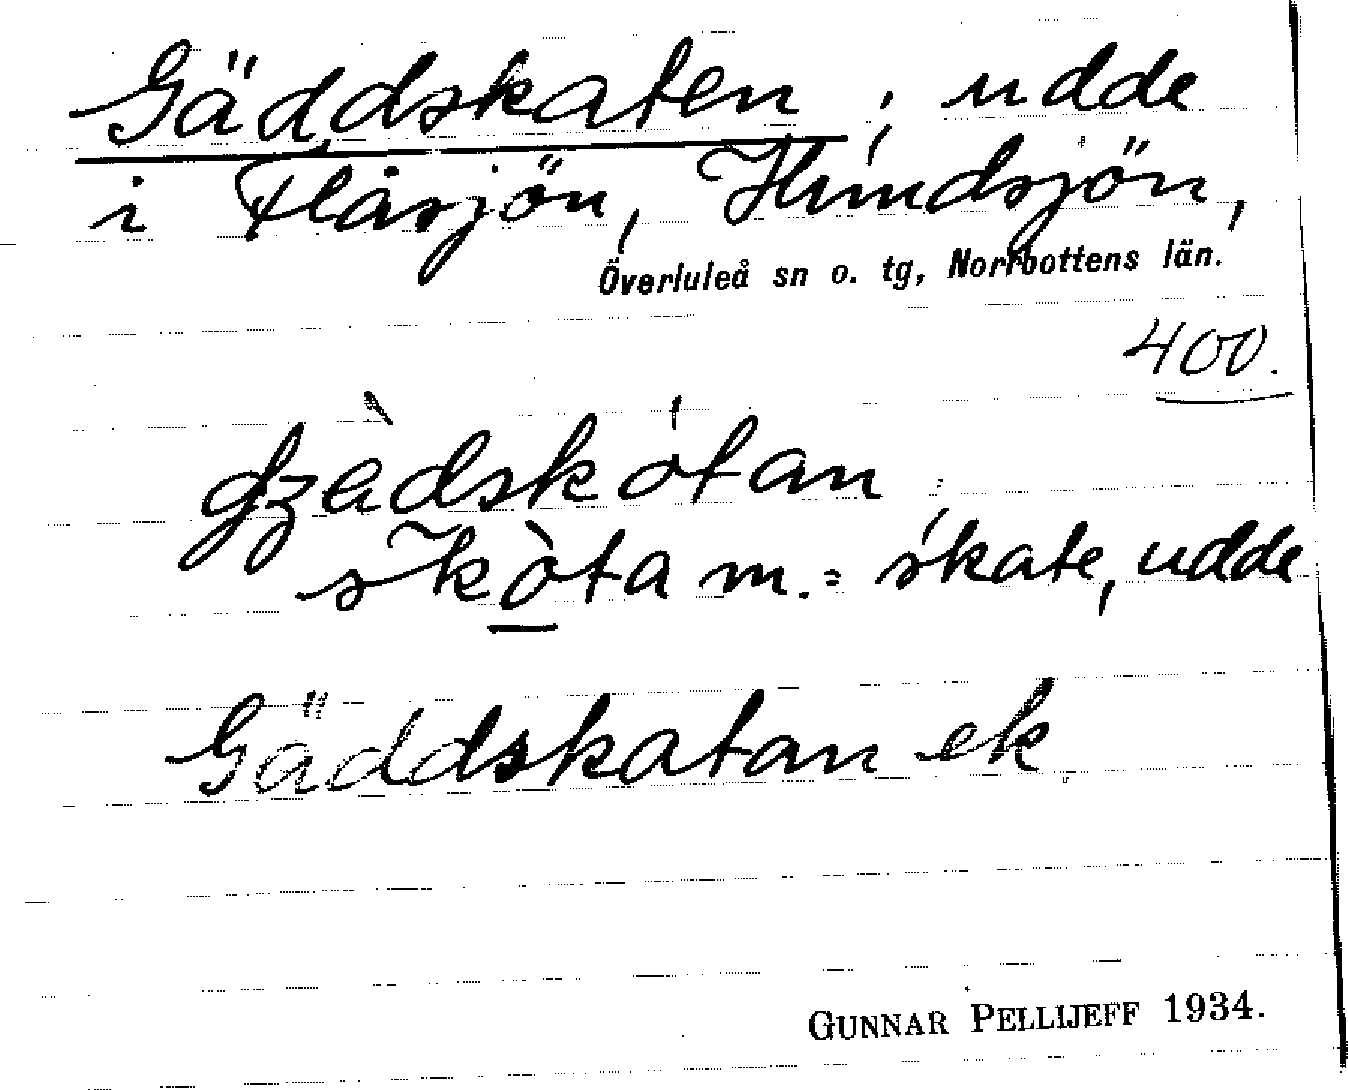 Gäddskaten, udde
i Flåsjön, Hundsjön,
Överluleå sn o. tg, Norrbottens län.
400.
skòta m. = skate, udde
Gäddskatan ek
GUNNAR PELLIJEFF 1934.